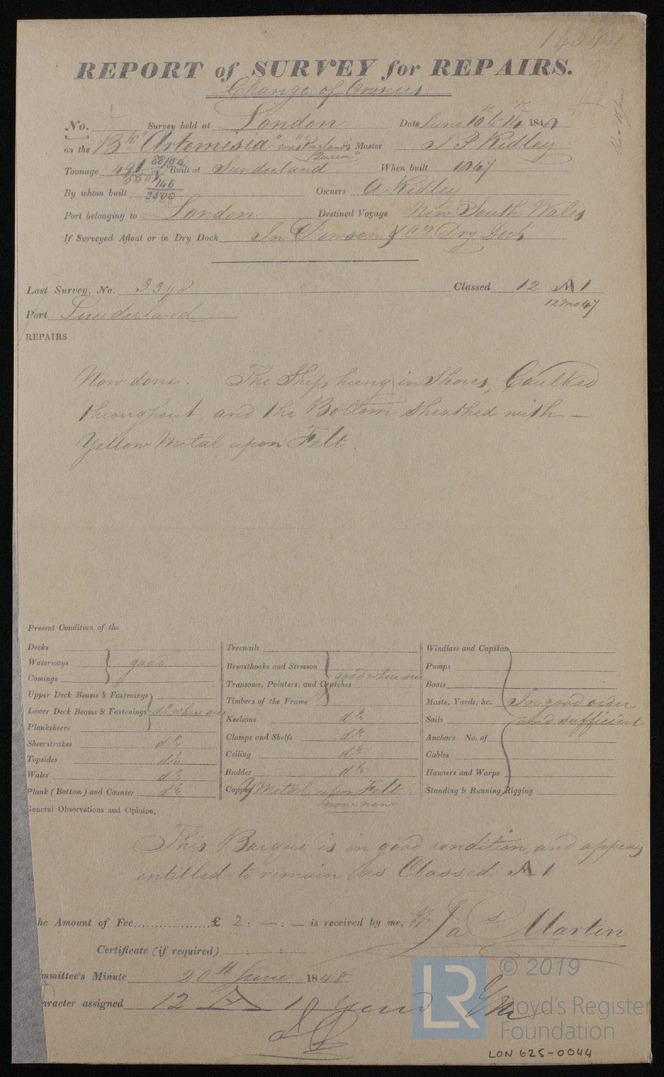 REPORT of SURVEY for REPAIRS.
Change of Owners
No. Survey held at London Date June 10 & 14 1848
on the Bk Artemisia Master J P Ridley
Tonnage 491 Built at Sunderland When built 1847
By whom built Owners A Ridley
Port belonging to London Destined Voyage New South Wales
If Surveyed Afloat or in Dry Dock In Dry Dock
Last Survey, No. 3398 Classed 12 A 1
12 mo 47
Port Sunderland
REPAIRS
Now done. The Ship hung in Shores, Caulked
throughout, and the Bottom sheathed with –
Yellow Metal upon Felt.
Present Condition of the
Decks
Waterways good
Comings
Upper Deck Beams & Fastenings
Lower Deck Beams & Fastenings do where seen
Planksheers
Sheerstrakes do
Topsides do
Wales do
Plank (Bottom) and Counter do
Treenails
Breasthooks and Stemson good where seen
Transoms, Pointers, and Crutches
Timbers of the Frame
Keelsons do
Clamps and Shelfs do
Ceiling do
Rudder do
Copper Y Metal upon Felt
now new
Windlass and Capstan
Pumps
Boats
Masts, Yards, &c. In good order
Sails and sufficient
Anchors No. of
Cables
Hawsers and Warps
Standing & Running Rigging
General Observations and Opinion,
This Barque is in good condition, and appears
entitled to remain as Classed A 1
he Amount of Fee £ 2 : – : – is received by me, Jas Martin
Certificate (if required)
mmittee's Minute 20th June 1848
aracter assigned 12 A 1
LR © 2019
Lloyd's Register
Foundation
LON 625-0044